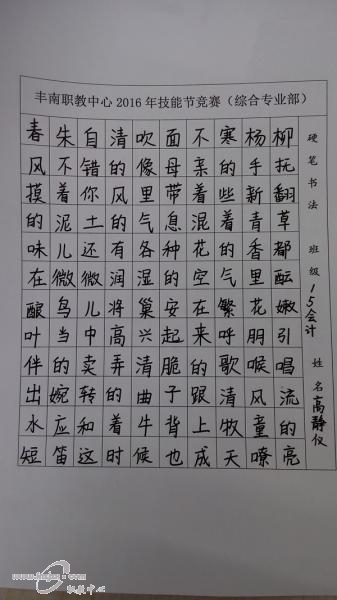 丰南职教中心2016年技能节竞赛（综合专业部）
春朱自清吹面不寒杨柳
风不错的像母亲的手抚
摸着你风里带着些新翻
的泥土的气息混着青草
味儿还有各种花的香都
在微微润湿的空气里酝
酿鸟儿将巢安在繁花嫩
叶当中高兴起来呼朋引
伴的卖弄清脆的歌喉唱
出婉转的曲子跟清风流
水应和着牛背上牧童的
短笛这时候也成天嘹亮
硬笔书法 班级 15会计 姓名 高静仪
职教中心